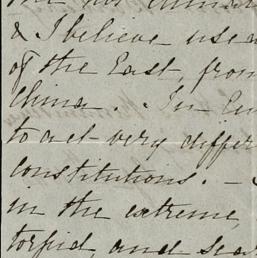 & I believe use
of the East, from
China. In Eu
to act very differ
constitutions. —
in the extreme
torpid, and scar